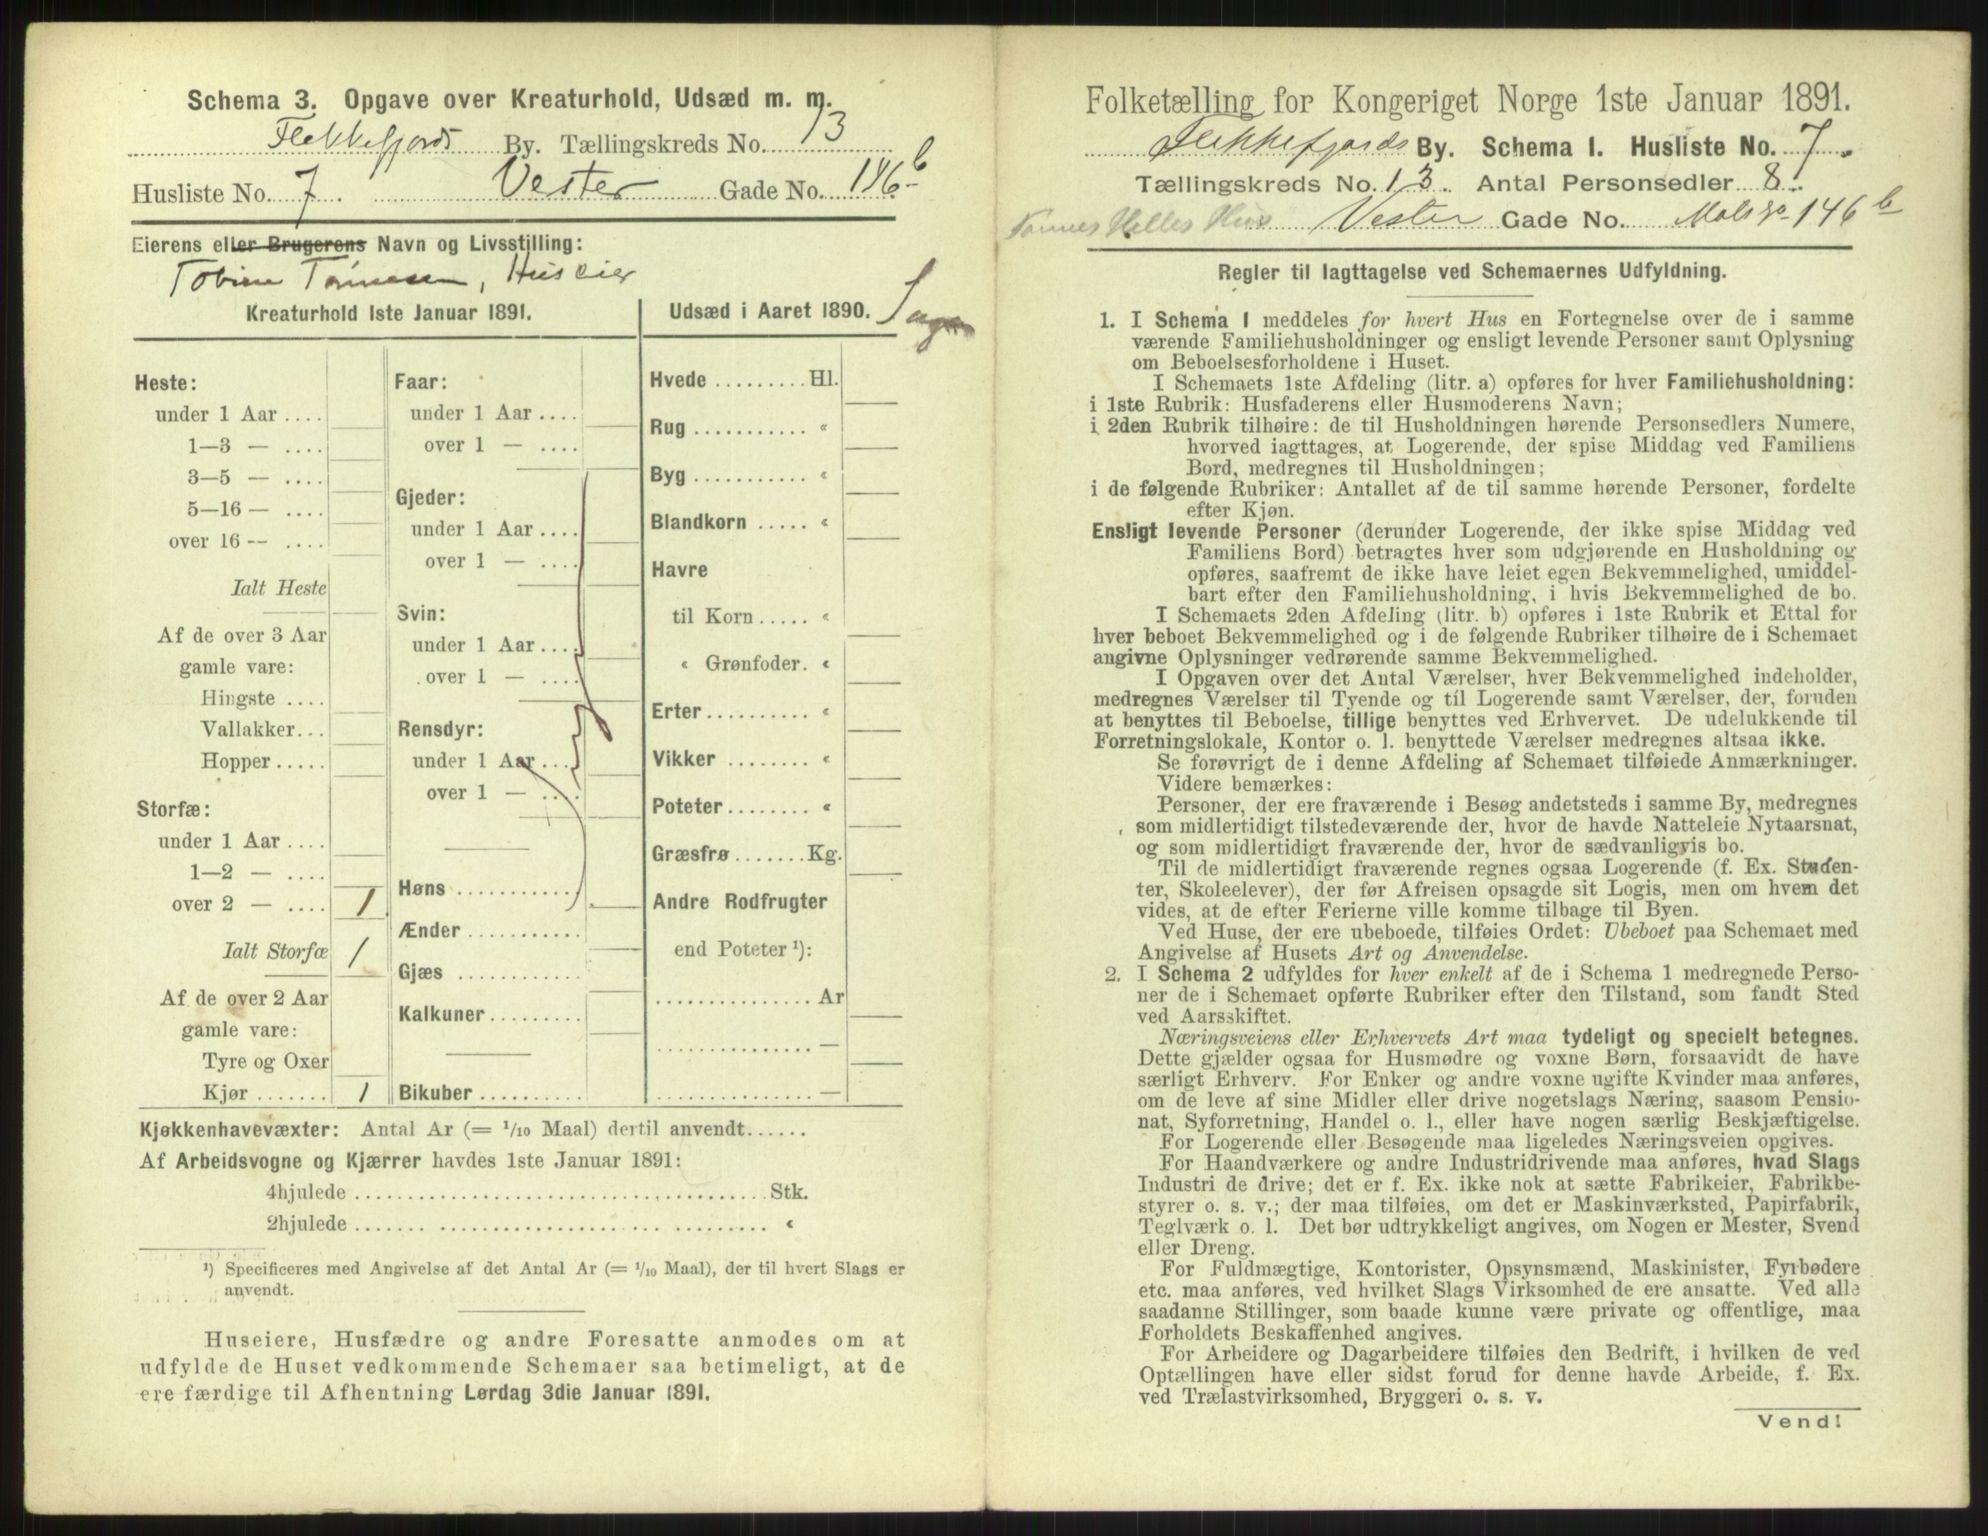 Schema 3. Opgave over Kreaturhold, Udsæd m. m.
Flekkefjords By. Tællingskreds No. 13
Husliste No. 7. Vester Gade No. 146 b
Eierens eller Brugerens Navn og Livsstilling:
Tobine Tønnesen, Huseier
Kreaturhold 1ste Januar 1891.
Udsæd i Aaret 1890.
Ingen
Heste:
under 1 Aar ....
1—3 — ....
3—5 — ....
5—16 — ....
over 16 — ....
Ialt Heste
Af de over 3 Aar
gamle vare:
Hingste ....
Vallakker...
Hopper .....
Storfæ:
under 1 Aar ....
1—2 — ....
over 2 — .... 1
Ialt Storfæ 1
Af de over 2 Aar
gamle vare:
Tyre og Oxer
Kjør ....... 1
Faar:
under 1 Aar ....
over 1 — ....
Gjeder:
under 1 Aar ....
over 1 — ....
Svin:
under 1 Aar ....
over 1 — ....
Rensdyr:
under 1 Aar ....
over 1 — ....
Høns ...........
Ænder ...........
Gjæs ...........
Kalkuner.........
Bikuber ..........
Hvede ......... Hl.
Rug ........... «
Byg ........... «
Blandkorn ..... «
Havre
til Korn ..... «
« Grønfoder. «
Erter .......... «
Vikker ........ «
Poteter ....... «
Græsfrø ....... Kg.
Andre Rodfrugter
end Poteter ¹):
............... Ar
............... —
............... —
Kjøkkenhavevæxter: Antal Ar (= 1/10 Maal) dertil anvendt......
Af Arbeidsvogne og Kjærrer havdes 1ste Januar 1891:
4hjulede ........................................ Stk.
2hjulede ........................................ «
¹) Specificeres med Angivelse af det Antal Ar (= 1/10 Maal), der til hvert Slags er
anvendt.
Huseiere, Husfædre og andre Foresatte anmodes om at
udfylde de Huset vedkommende Schemaer saa betimeligt, at de
ere færdige til Afhentning Lørdag 3die Januar 1891.
Folketælling for Kongeriget Norge 1ste Januar 1891.
Flekkefjords By. Schema I. Husliste No. 7.
Tællingskreds No. 13. Antal Personsedler 8.
Tønnes Helles Hus Vester Gade No. 146 b
Regler til Iagttagelse ved Schemaernes Udfyldning.
1. I Schema 1 meddeles for hvert Hus en Fortegnelse over de i samme
værende Familiehusholdninger og ensligt levende Personer samt Oplysning
om Beboelsesforholdene i Huset.
I Schemaets 1ste Afdeling (litr. a) opføres for hver Familiehusholdning:
i 1ste Rubrik: Husfaderens eller Husmoderens Navn;
i 2den Rubrik tilhøire: de til Husholdningen hørende Personsedlers Numere,
hvorved iagttages, at Logerende, der spise Middag ved Familiens
Bord, medregnes til Husholdningen;
i de følgende Rubriker: Antallet af de til samme hørende Personer, fordelte
efter Kjøn.
Ensligt levende Personer (derunder Logerende, der ikke spise Middag ved
Familiens Bord) betragtes hver som udgjørende en Husholdning og
opføres, saafremt de ikke have leiet egen Bekvemmelighed, umiddel-
bart efter den Familiehusholdning, i hvis Bekvemmelighed de bo.
I Schemaets 2den Afdeling (litr. b) opføres i 1ste Rubrik et Ettal for
hver beboet Bekvemmelighed og i de følgende Rubriker tilhøire de i Schemaet
angivne Oplysninger vedrørende samme Bekvemmelighed.
I Opgaven over det Antal Værelser, hver Bekvemmelighed indeholder,
medregnes Værelser til Tyende og til Logerende samt Værelser, der, foruden
at benyttes til Beboelse, tillige benyttes ved Erhvervet. De udelukkende til
Forretningslokale, Kontor o. l. benyttede Værelser medregnes altsaa ikke.
Se forøvrigt de i denne Afdeling af Schemaet tilføiede Anmærkninger.
Videre bemærkes:
Personer, der ere fraværende i Besøg andetsteds i samme By, medregnes
som midlertidigt tilstedeværende der, hvor de havde Natteleie Nytaarsnat,
og som midlertidigt fraværende der, hvor de sædvanligvis bo.
Til de midlertidigt fraværende regnes ogsaa Logerende (f. Ex. Studen-
ter, Skoleelever), der før Afreisen opsagde sit Logis, men om hvem det
vides, at de efter Ferierne ville komme tilbage til Byen.
Ved Huse, der ere ubeboede, tilføies Ordet: Ubeboet paa Schemaet med
Angivelse af Husets Art og Anvendelse.
2. I Schema 2 udfyldes for hver enkelt af de i Schema 1 medregnede Perso-
ner de i Schemaet opførte Rubriker efter den Tilstand, som fandt Sted
ved Aarsskiftet.
Næringsveiens eller Erhvervets Art maa tydeligt og specielt betegnes.
Dette gjælder ogsaa for Husmødre og voxne Børn, forsaavidt de have
særligt Erhverv. For Enker og andre voxne ugifte Kvinder maa anføres,
om de leve af sine Midler eller drive nogetslags Næring, saasom Pensio-
nat, Syforretning, Handel o. l., eller have nogen særlig Beskjæftigelse.
For Logerende eller Besøgende maa ligeledes Næringsveien opgives.
For Haandværkere og andre Industridrivende maa anføres, hvad Slags
Industri de drive; det er f. Ex. ikke nok at sætte Fabrikeier, Fabrikbe-
styrer o. s. v.; der maa tilføies, om det er Maskinværksted, Papirfabrik,
Teglværk o. l. Det bør udtrykkeligt angives, om Nogen er Mester, Svend
eller Dreng.
For Fuldmægtige, Kontorister, Opsynsmænd, Maskinister, Fyrbødere
etc. maa anføres, ved hvilket Slags Virksomhed de ere ansatte. Ved alle
saadanne Stillinger, som baade kunne være private og offentlige, maa
Forholdets Beskaffenhed angives.
For Arbeidere og Dagarbeidere tilføies den Bedrift, i hvilken de ved
Optællingen have eller sidst forud for denne havde Arbeide, f. Ex.
ved Trælastvirksomhed, Bryggeri o. s. v.
Vend!